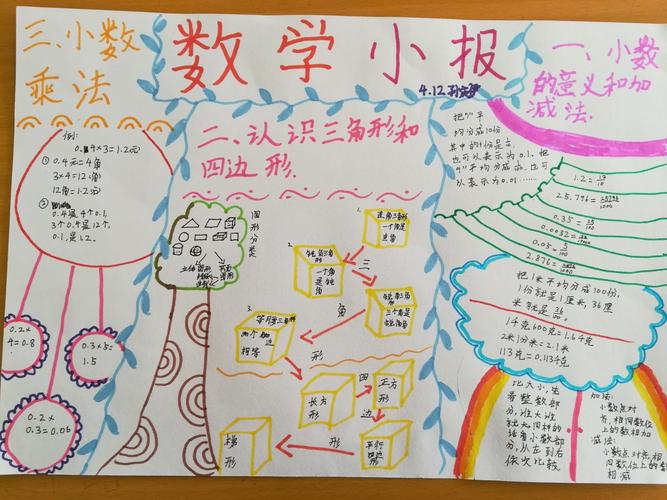 数学小报
4.12
三、小数
乘法
例:
0.4×3=1.2(元)
① 0.4元=4角
3×4=12(角)
12角=1.2(元)
②
0.4是4个0.1,
3个0.4是12个,
0.1,是1.2。
0.2×
4=0.8
0.3×5=
1.5
0.2×
0.3=0.06
二、认识三角形和
四边形.
图形分类
立体图形
平面图形
1.
直角三角形
一个角是
直角
2.
钝角三角形
一个角
是钝角
三
锐角三角形
三个角是
锐角
角
3.
等腰三角形
两个
边
相等
形
四
长方
形
正方
形
边
平行
四边形
梯
形
形
一、小数
的意义和加
减法.
把"1"平
均分成10份
其中的1份是
也可以表示为0.1. 把
"1"平均分成 也可
以表示为0.01……
1.2=
25.796=
0.35=
0.0032=
0.05=
2.876=
把1米平均分成100份,
1份就是1厘米, 36厘
米就是
1千克600克=1.6千克
2米1分米=2.1米
113克=0.113千克
比大小,先
看整数部
分,谁大谁
就大同样的
话看小数部
分,从左到右
依次比较
加法:
小数点对
齐,相同数位
上的数相加
减法:
小数点对齐,相
同数位上的数
相减